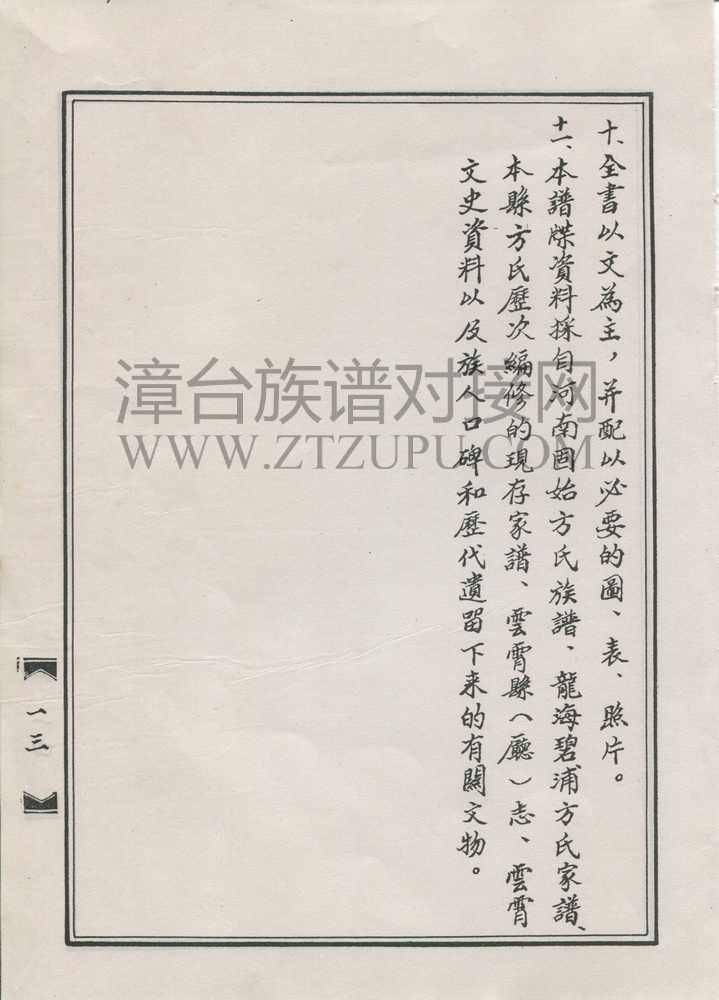 十、全書以文為主，并配以必要的圖、表、照片。
十一、本譜牒資料採自河南固始方氏族譜、龍海碧浦方氏家譜、
本縣方氏歷次編修的現存家譜、雲霄縣（廳）志、雲霄
文史資料以及族人口碑和歷代遺留下来的有關文物。
漳台族谱对接网
WWW.ZTZUPU.COM
一三